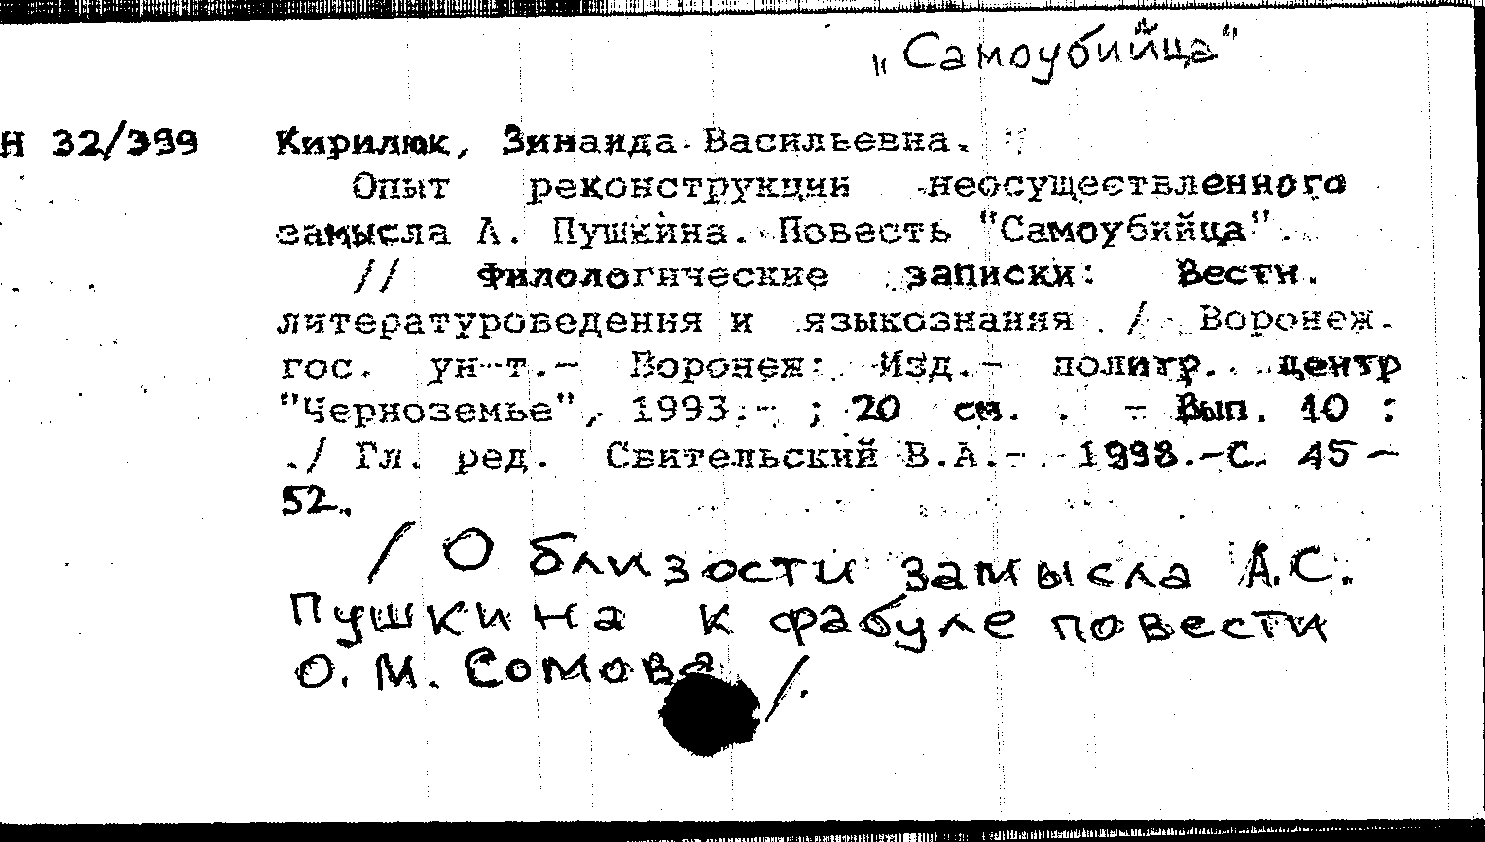 „Самоубийца"
Н 32/399 Кирилюк, Зинаида Васильевна.
Опыт реконструкции неосуществленного
замысла А. Пушкина. Повесть "Самоубийца".
// Филологические записки: Вестн.
литературоведения и языкознания / Воронеж.
гос. ун-т.- Воронеж: Изд.- полигр. центр
"Черноземье", 1993.- ; 20 см. . - Вып. 10 :
./ Гл. ред. Свительский В.А.- 1998.-С. 45-
52.
/ О близости замысла А.С.
Пушкина к фабуле повести
О. М. Сомова /.